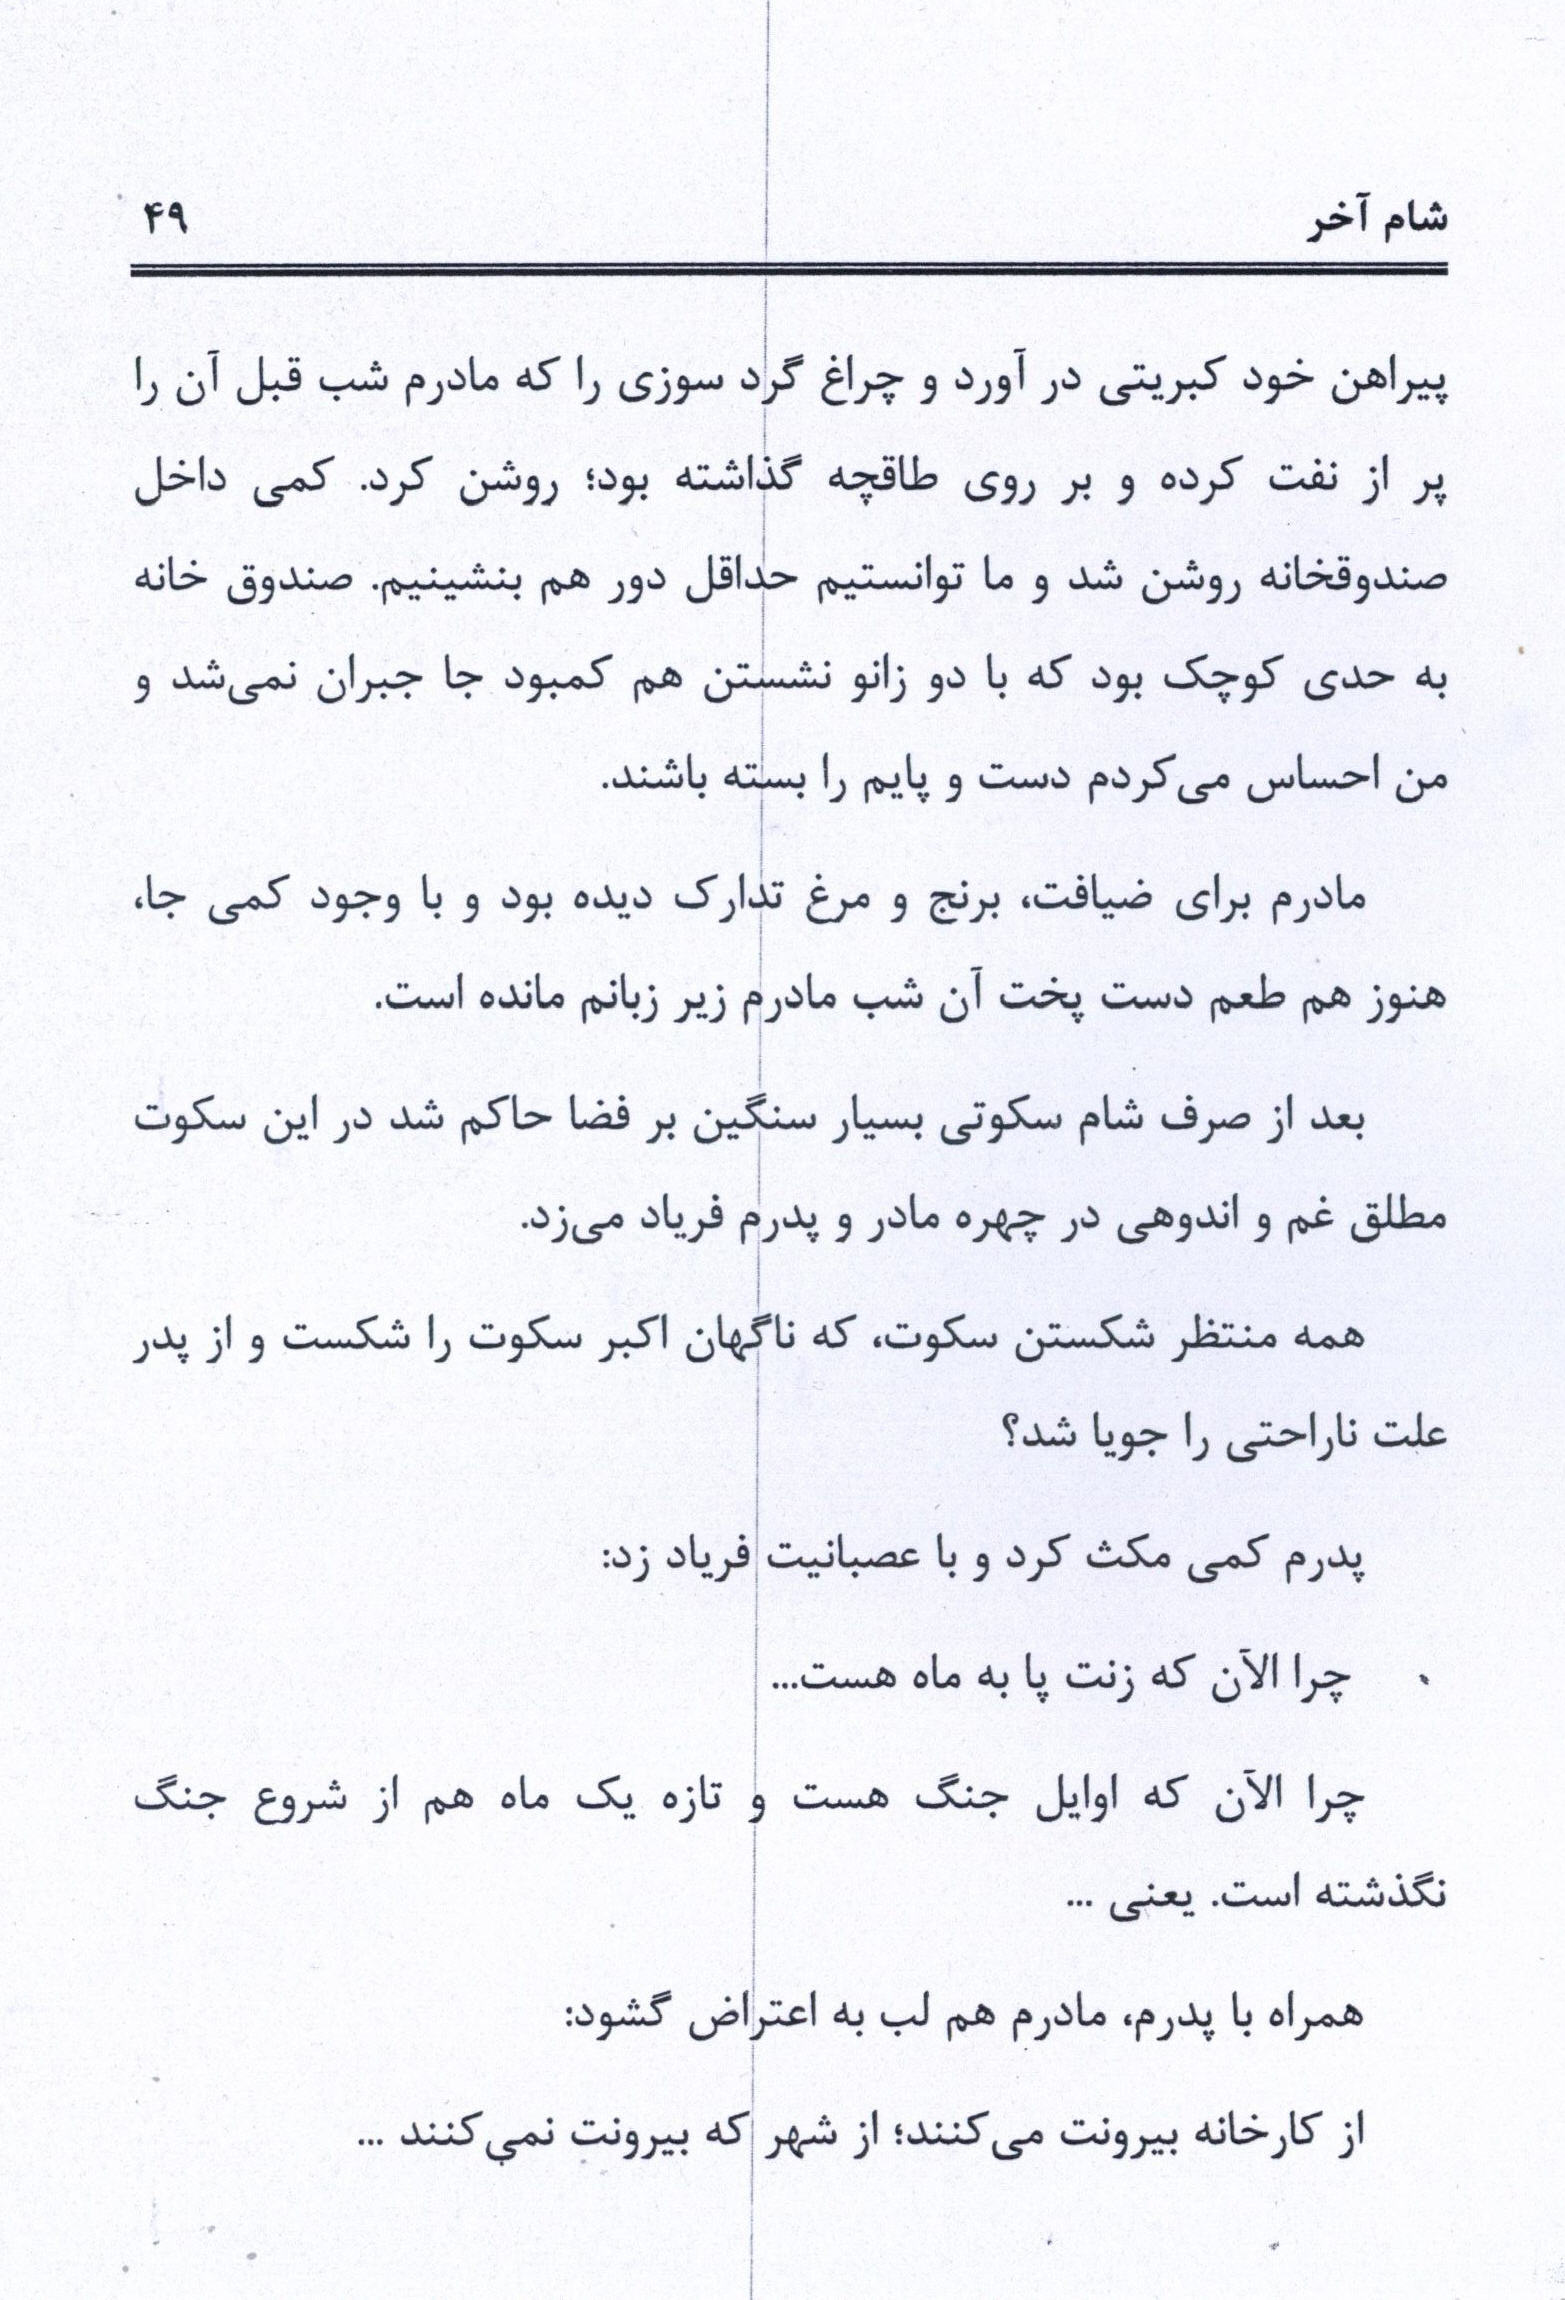 شام آخر ۴۹
پیراهن خود کبریتی در آورد و چراغ گرد سوزی را که مادرم شب قبل آن را
پر از نفت کرده و بر روی طاقچه گذاشته بود؛ روشن کرد. کمی داخل
صندوقخانه روشن شد و ما توانستیم حداقل دور هم بنشینیم. صندوق خانه
به حدی کوچک بود که با دو زانو نشستن هم کمبود جا جبران نمی‌شد و
من احساس می‌کردم دست و پایم را بسته باشند.
مادرم برای ضیافت، برنج و مرغ تدارک دیده بود و با وجود کمی جا،
هنوز هم طعم دست پخت آن شب مادرم زیر زبانم مانده است.
بعد از صرف شام سکوتی بسیار سنگین بر فضا حاکم شد در این سکوت
مطلق غم و اندوهی در چهره مادر و پدرم فریاد می‌زد.
همه منتظر شکستن سکوت، که ناگهان اکبر سکوت را شکست و از پدر
علت ناراحتی را جویا شد؟
پدرم کمی مکث کرد و با عصبانیت فریاد زد:
چرا الآن که زنت پا به ماه هست...
چرا الآن که اوایل جنگ هست و تازه یک ماه هم از شروع جنگ
نگذشته است. یعنی ...
همراه با پدرم، مادرم هم لب به اعتراض گشود:
از کارخانه بیرونت می‌کنند؛ از شهر که بیرونت نمی‌کنند ...